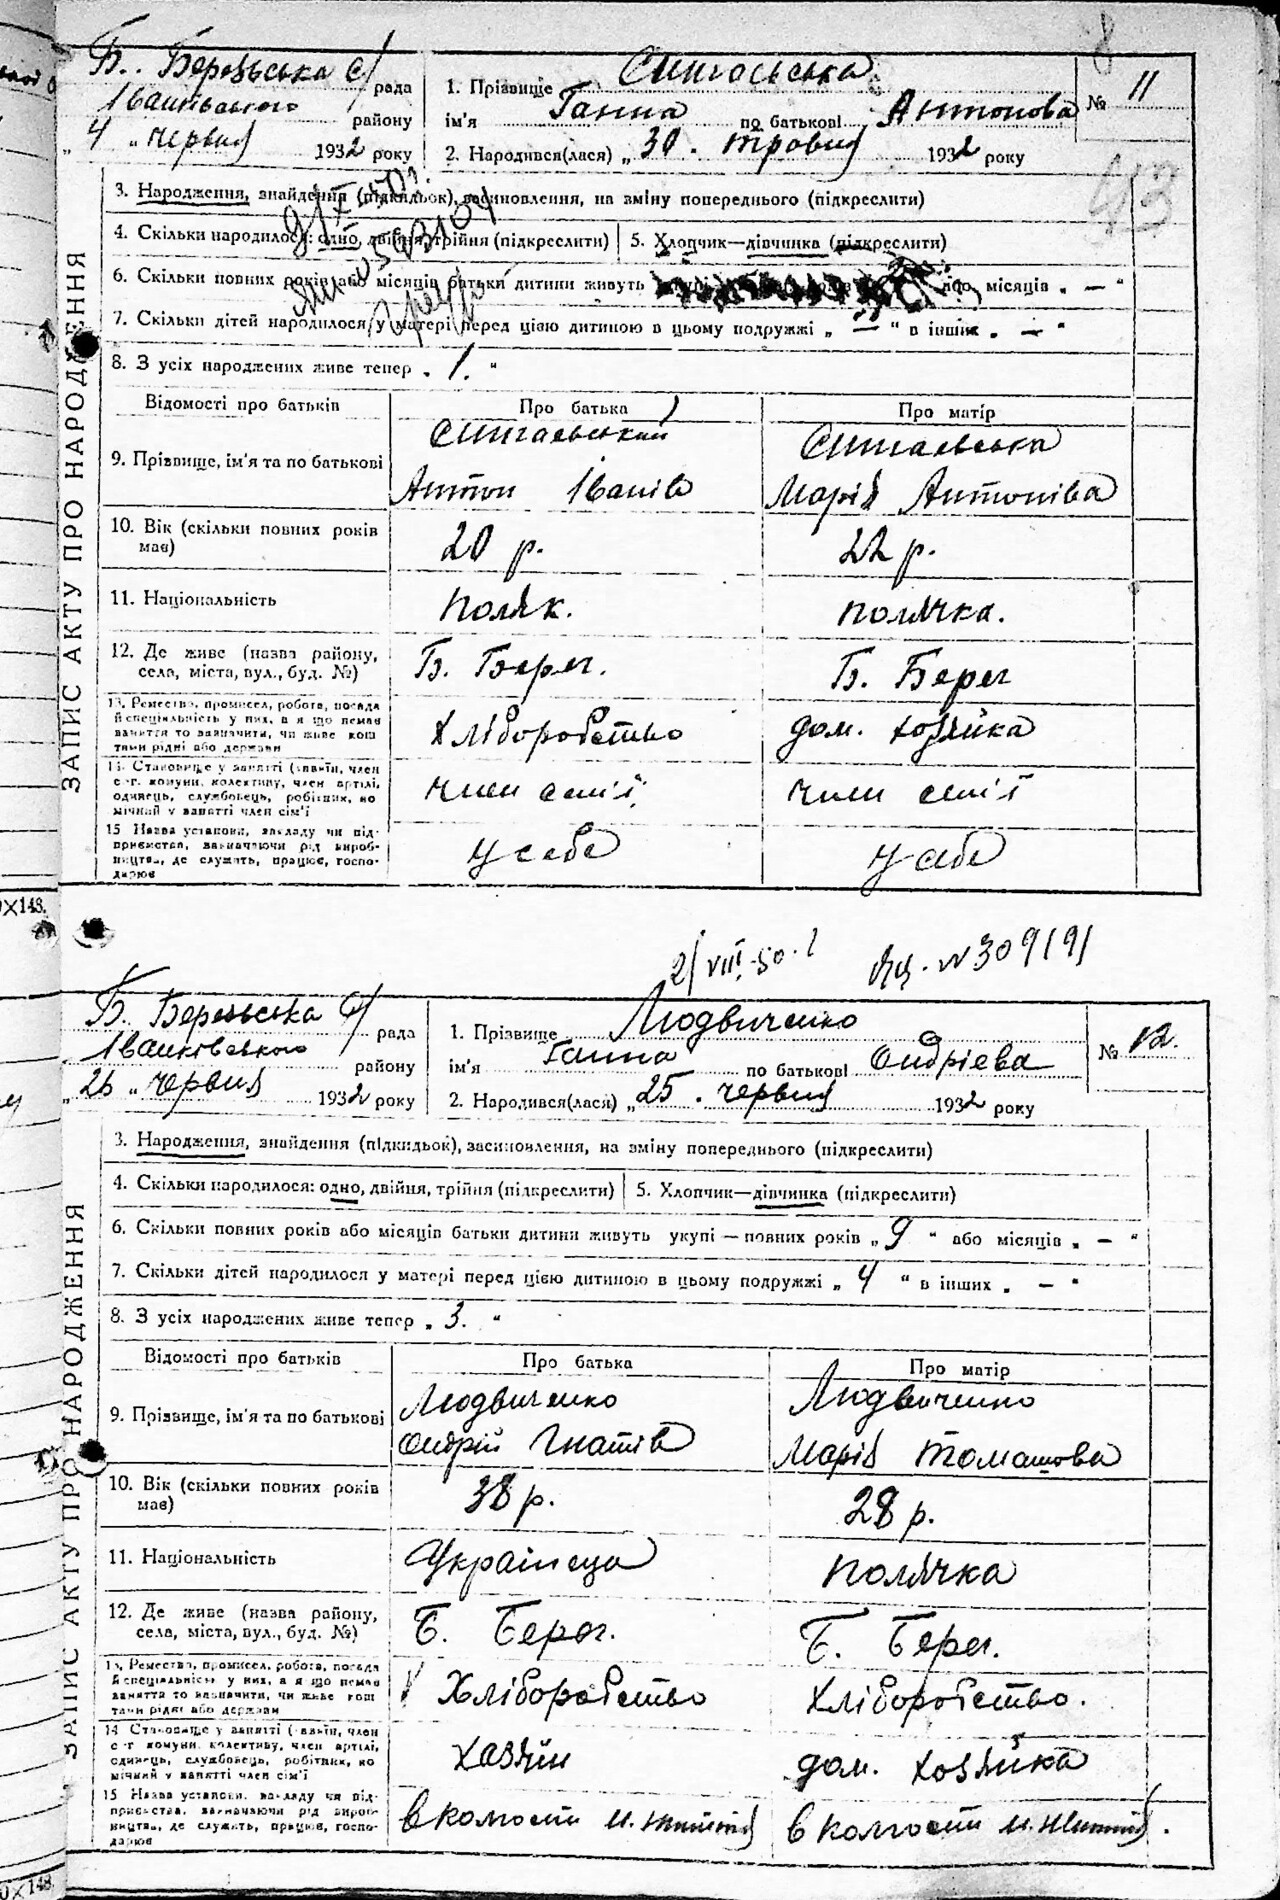 Б. Березьська с/рада
Іванківського району
„ 4 „ червня 1932 року
1. Прізвище Сингаєвська
ім'я Ганна по батькові Антонова
№ 11
2. Народився(лася) „ 30 . травня 1932 року
43
3. Народження, знайдення (підкидьок), засиновлення, на зміну попереднього (підкреслити)
4. Скільки народилося: одно, двійня, трійня (підкреслити) 5. Хлопчик—дівчинка (підкреслити)
6. Скільки повних років або місяців батьки дитини живуть або місяців „ — "
7. Скільки дітей народилося у матері перед цією дитиною в цьому подружжі „ — " в інших „ — "
8. З усіх народжених живе тепер „ 1. "
ЗАПИС АКТУ ПРО НАРОДЖЕННЯ
Відомості про батьків Про батька Про матір
9. Прізвище, ім'я та по батькові Сингаєвський Антон Іванів Сингаєвська Марія Антонівa
10. Вік (скільки повних років має) 20 р. 22 р.
11. Національність поляк. полячка.
12. Де живе (назва району, села, міста, вул., буд. №) Б. Берег. Б. Берег
13. Ремество, промисел, робота, посада й спеціяльність у них, а якщо немає заняття то зазначити, чи живе кош тами рідні або держави Хліборобство дом. хозяйка
14. Становище у занятті (хазяїн, член с.-г. комуни, колективу, член артілі, одинець, службовець, робітник, по мічний у занятті член сім'ї член семʼї член семʼї
15 Назва установи, закладу чи під- приємства, зазначаючи рід вироб- ництва, де служить, працює, госпо- дарює у себе у себе
✕148.
2/VIII-50. № 309191
Б. Березьська с/рада
Іванківського району
„ 26 „ червня 1932 року
1. Прізвище Людвиченко
ім'я Ганна по батькові Ондрієва
№ 12.
2. Народився(лася) „ 25 . червня 1932 року
3. Народження, знайдення (підкидьок), засиновлення, на зміну попереднього (підкреслити)
4. Скільки народилося: одно, двійня, трійня (підкреслити) 5. Хлопчик—дівчинка (підкреслити)
6. Скільки повних років або місяців батьки дитини живуть укупі — повних років „ 9 " або місяців „ — "
7. Скільки дітей народилося у матері перед цією дитиною в цьому подружжі „ 4 " в інших „ — "
8. З усіх народжених живе тепер „ 3. "
ЗАПИС АКТУ ПРО НАРОДЖЕННЯ
Відомості про батьків Про батька Про матір
9. Прізвище, ім'я та по батькові Людвиченко Ондрій Гнатів Людвиченко Марія Томашова
10. Вік (скільки повних років має) 38 р. 28 р.
11. Національність Українець полячка
12. Де живе (назва району, села, міста, вул., буд. №) Б. Берег. Б. Берег.
13. Ремество, промисел, робота, посада й спеціяльність у них, а якщо немає заняття то зазначити, чи живе кош тами рідні або держави Хліборобство Хліборобство.
14 Становище у занятті (хазяїн, член с.-г. комуни, колективу, член артілі, одинець, службовець, робітник, по мічний у занятті член сім'ї хазяїн дом. хозяйка
15 Назва установи, закладу чи під- приємства, зазначаючи рід вироб- ництва, де служить, працює, госпо- дарює в колгоспі в колгоспі
✕148.